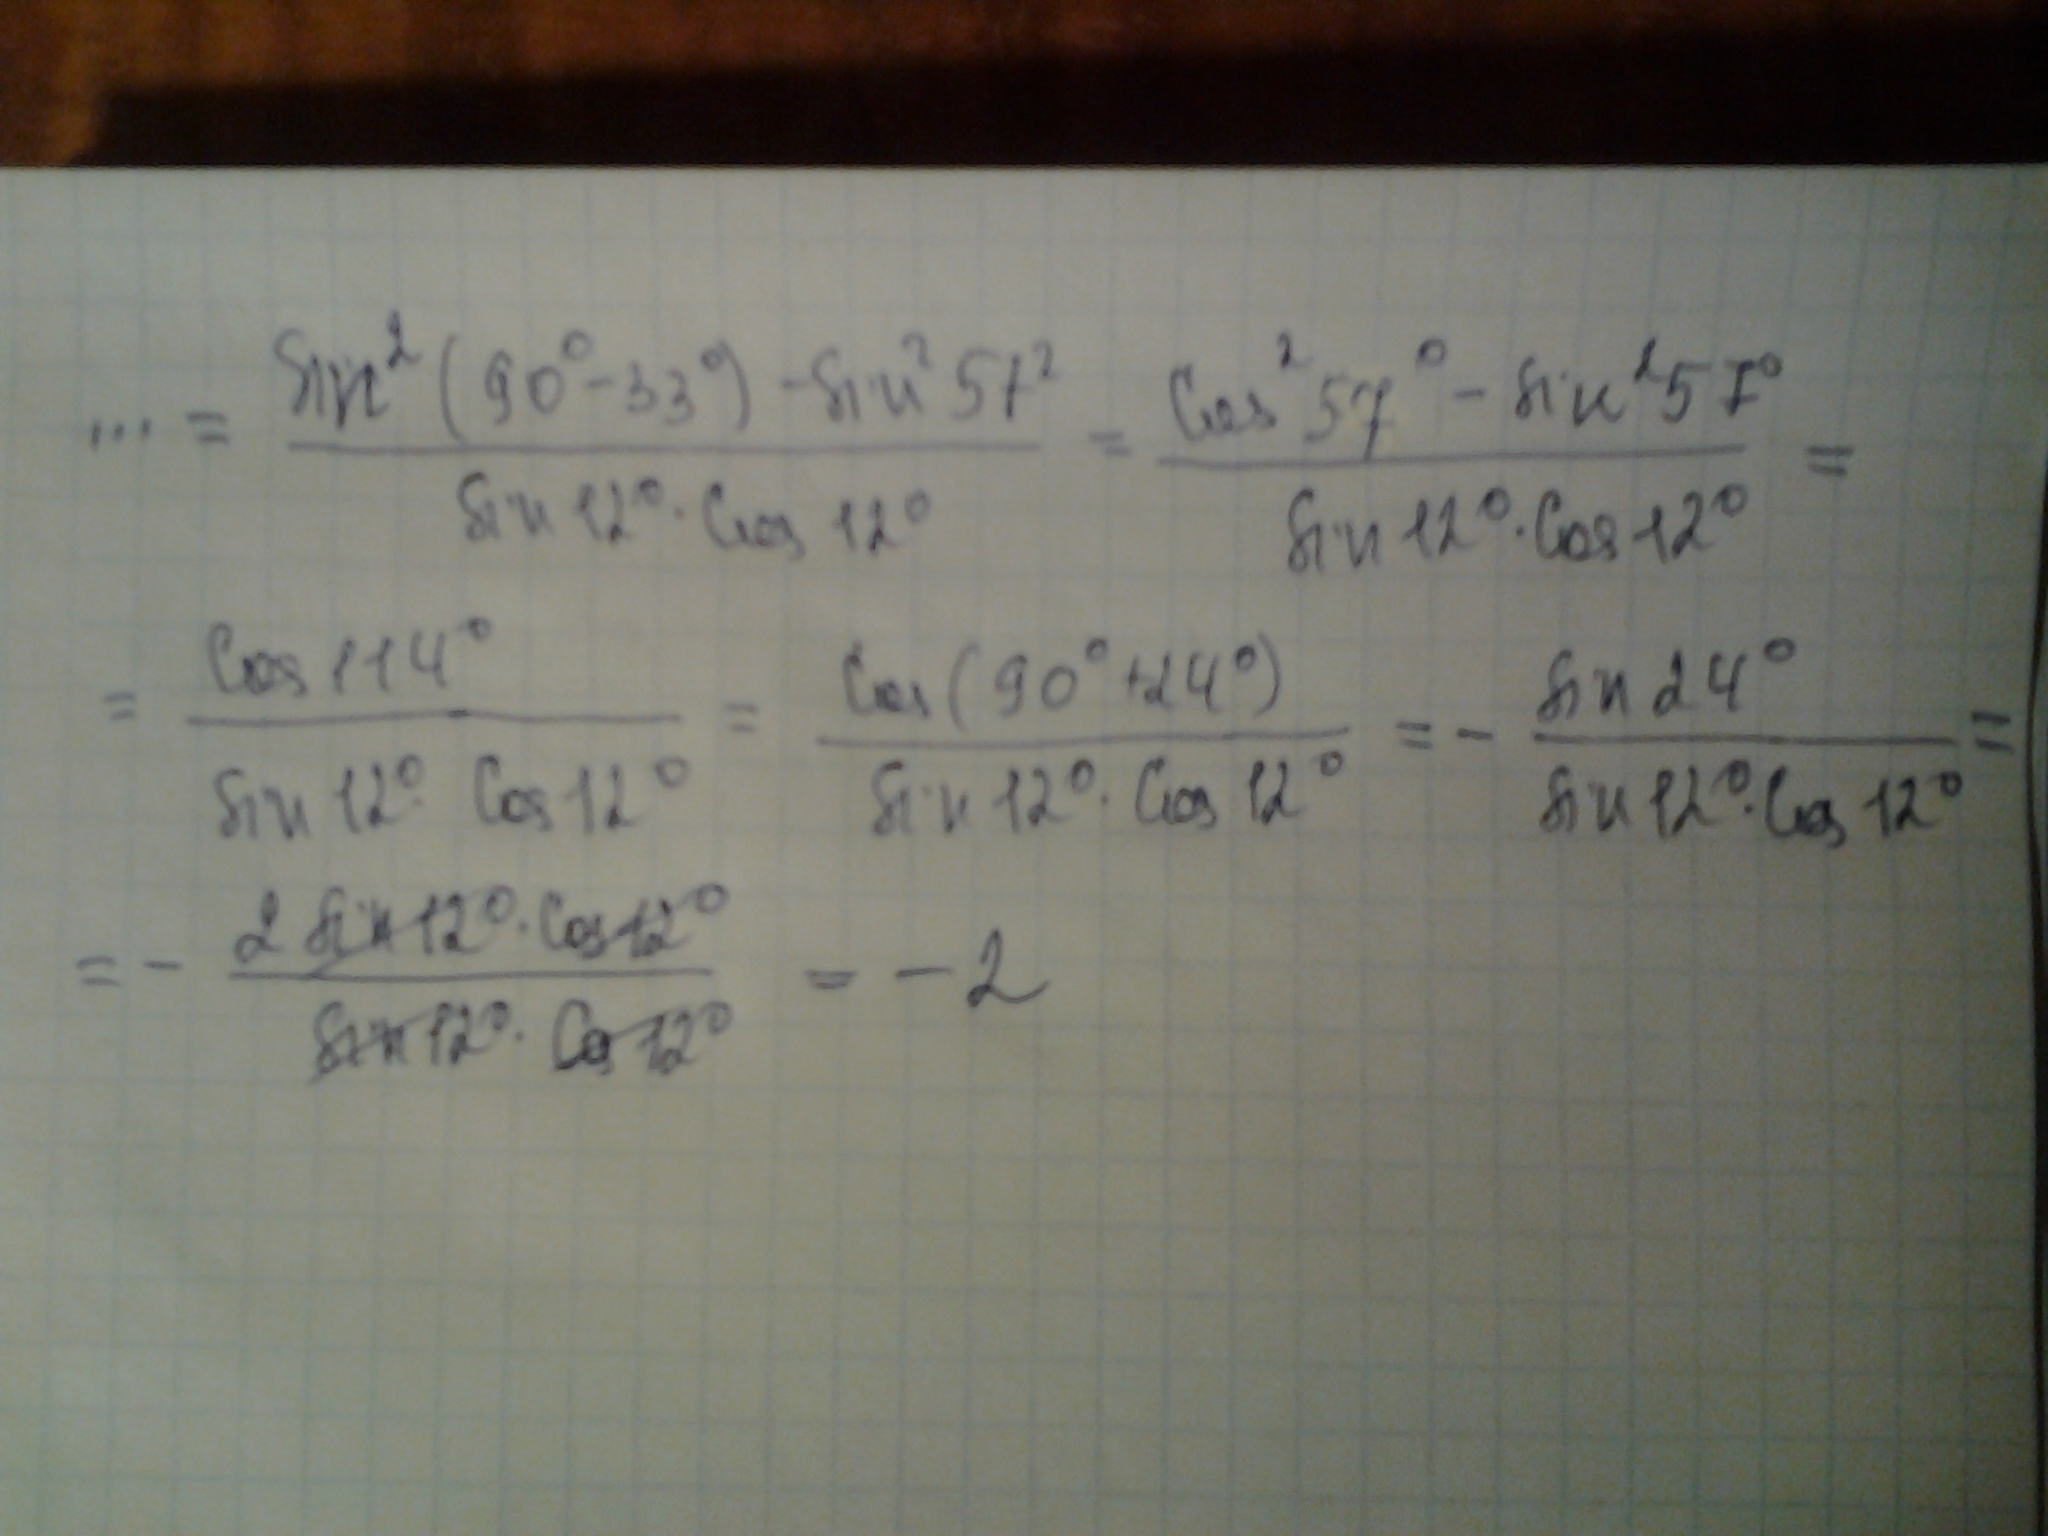 ... = sin²(90°-33°) - sin²57² / sin12°·cos12° = cos²57° - sin²57° / sin12°·cos12° =
= cos114° / sin12°·cos12° = cos(90°+24°) / sin12°·cos12° = - sin24° / sin12°·cos12° =
= - 2sin12°·cos12° / sin12°·cos12° = -2